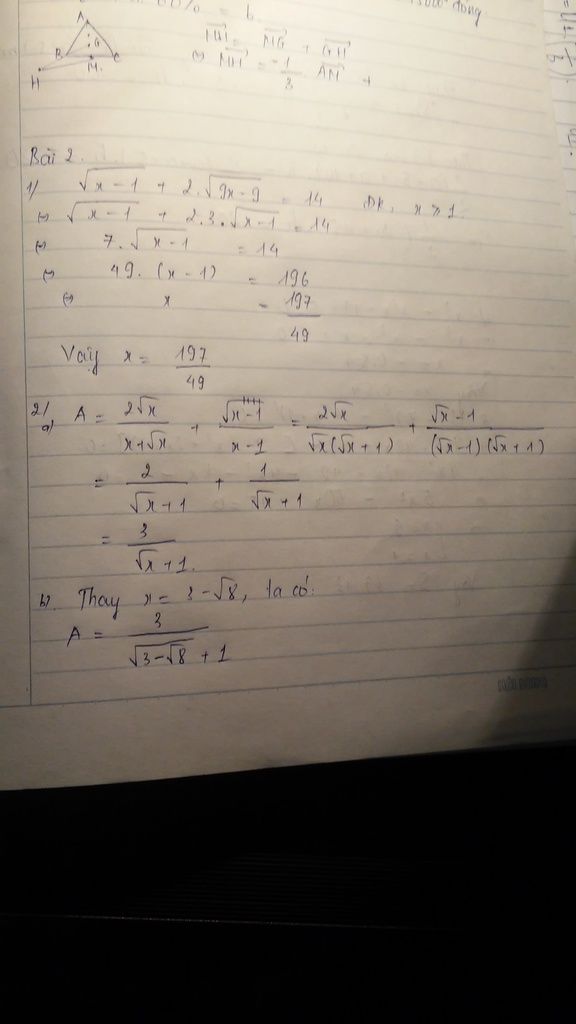 = 6
15000 đồng
A
G
B M C
H
MH = MG + GH
⇔ MH = -1/3 AM +
Bài 2.
1) √(x-1) + 2.√(9x-9) = 14 ĐK: x ≥ 1.
⇔ √(x-1) + 2.3.√(x-1) = 14
⇔ 7.√(x-1) = 14
⇔ 49.(x-1) = 196
⇔ x = 197/49
Vậy x = 197/49
2/ a) A = 2√x/(x+√x) + (√x-1)/(x-1) = 2√x/(√x(√x+1)) + (√x-1)/((√x-1)(√x+1))
= 2/(√x+1) + 1/(√x+1)
= 3/(√x+1).
b). Thay x = 3-√8, ta có:
A = 3/(√(3-√8) + 1)